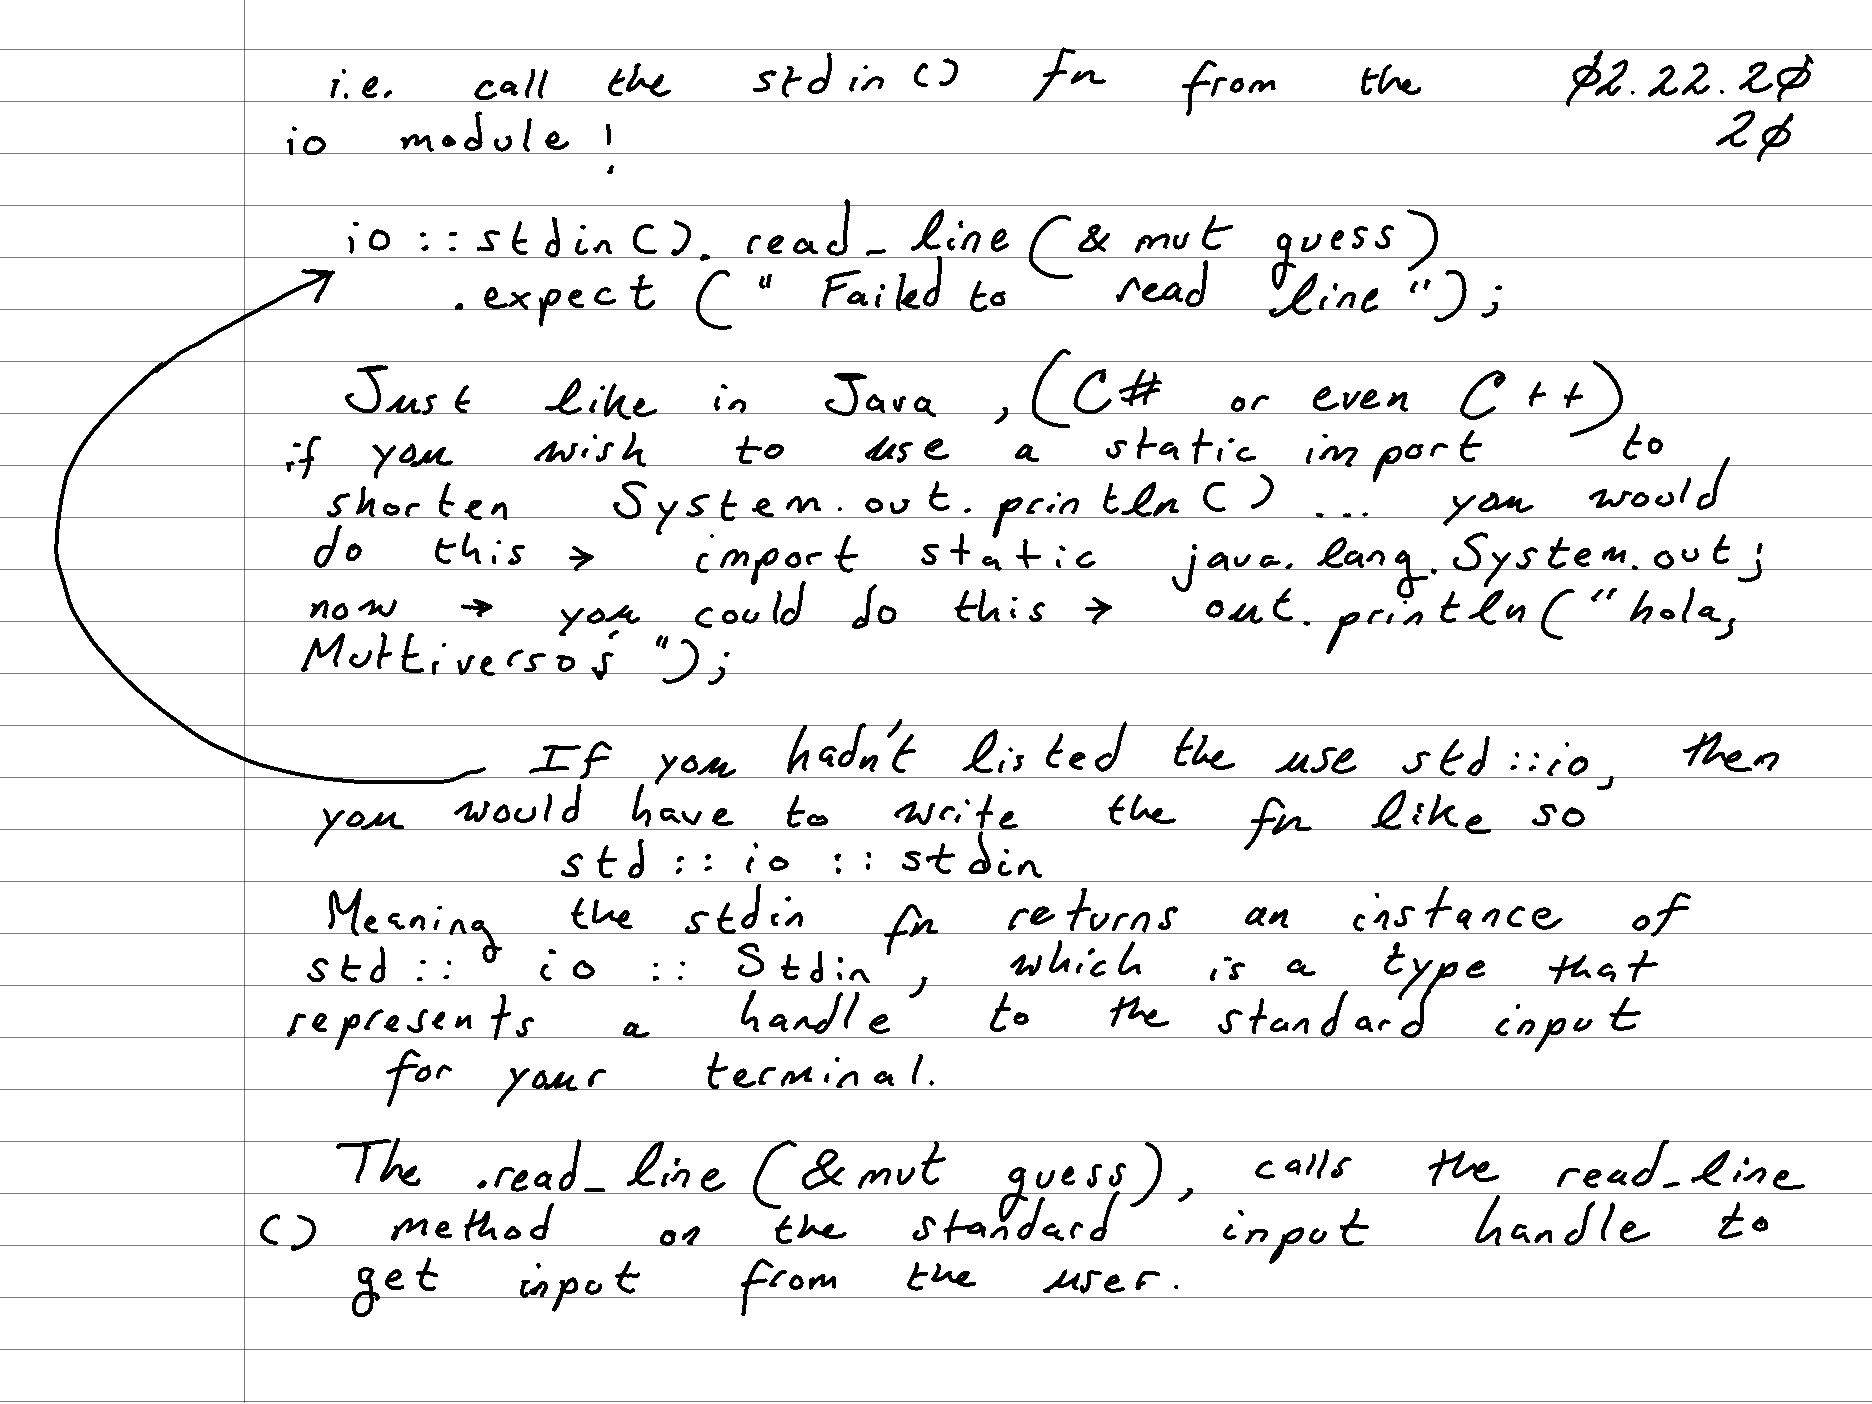 i.e. call the stdin() fn from the 02.22.20
io module! 20
io::stdin().read_line(&mut guess)
.expect("Failed to read line");
Just like in Java, (C# or even C++)
if you wish to use a static import to
shorten System.out.println() ... you would
do this → import static java.lang.System.out;
now → you could do this → out.println("hola,
Multiversos");
If you hadn't listed the use std::io, then
you would have to write the fn like so
std::io::stdin
Meaning the stdin fn returns an instance of
std::io::Stdin, which is a type that
represents a handle to the standard input
for your terminal.
The .read_line(&mut guess), calls the read_line
() method on the standard input handle to
get input from the user.